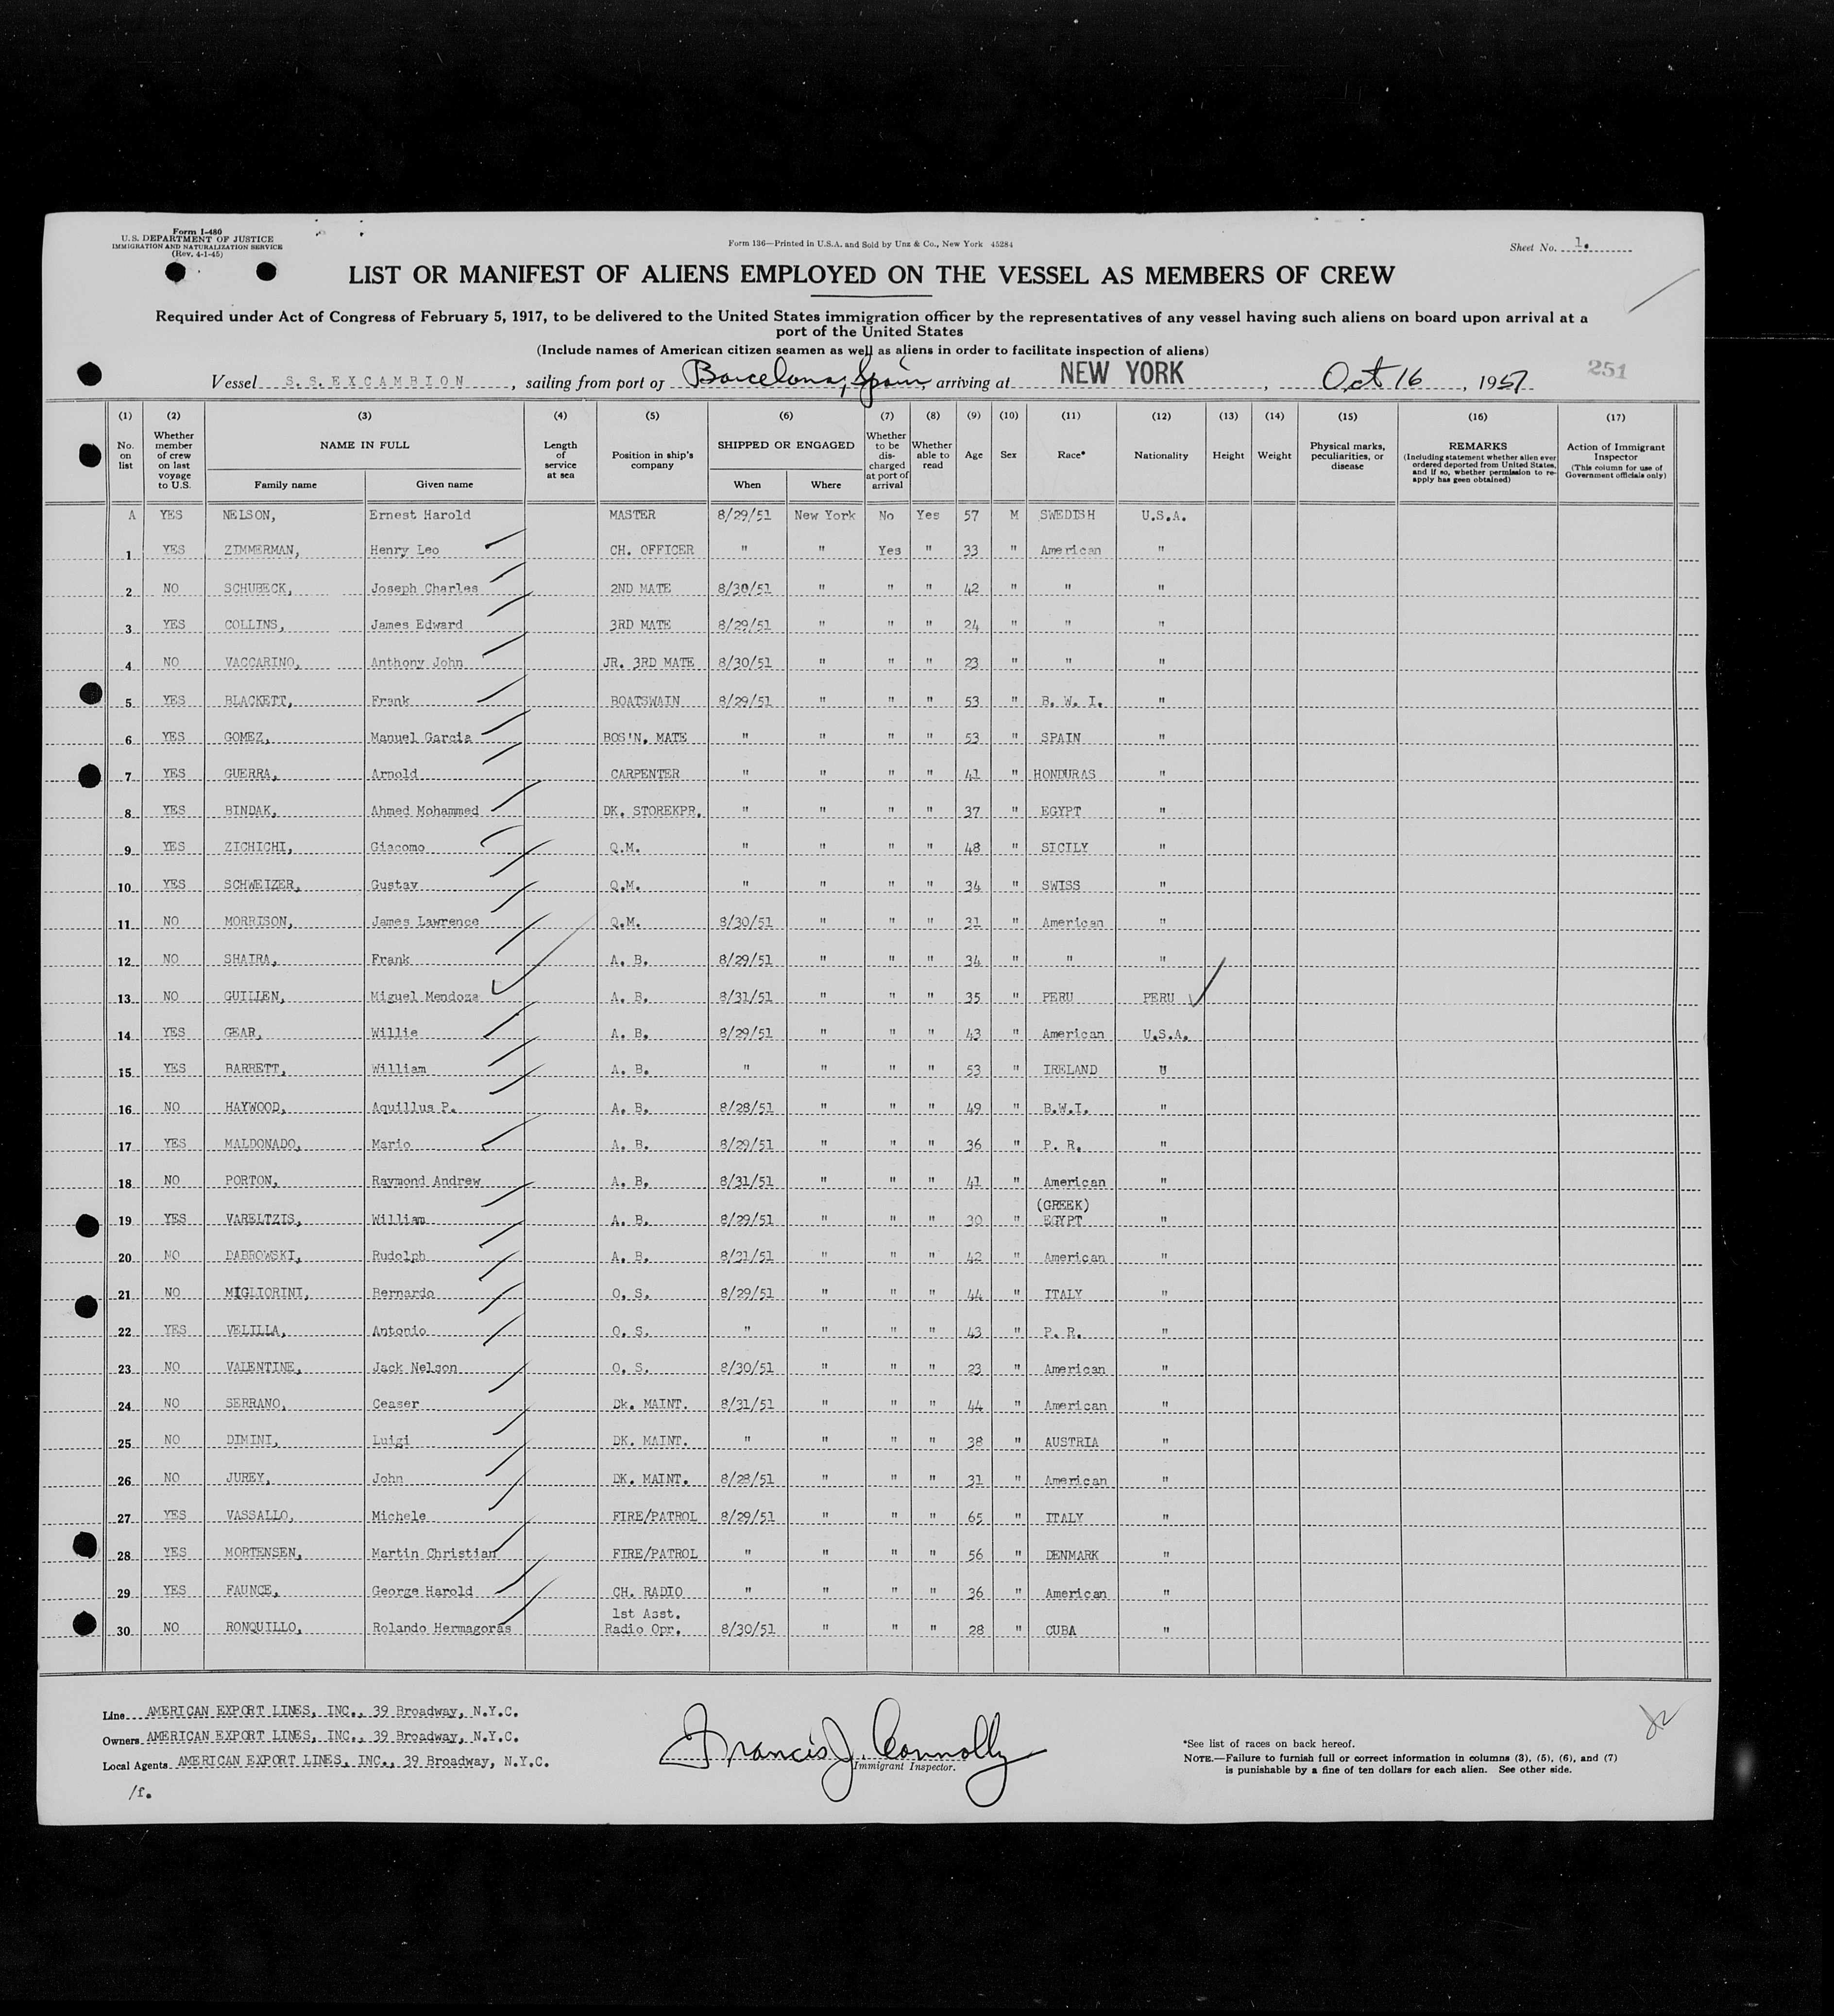 Form I-480
U.S. DEPARTMENT OF JUSTICE
IMMIGRATION AND NATURALIZATION SERVICE
(Rev. 4-1-45)
Form 136—Printed in U.S.A. and Sold by Unz & Co., New York 45284
Sheet No. 1.
LIST OR MANIFEST OF ALIENS EMPLOYED ON THE VESSEL AS MEMBERS OF CREW
Required under Act of Congress of February 5, 1917, to be delivered to the United States immigration officer by the representatives of any vessel having such aliens on board upon arrival at a
port of the United States
(Include names of American citizen seamen as well as aliens in order to facilitate inspection of aliens)
Vessel S.S.EXCAMBION, sailing from port of Barcelona, Spain, arriving at NEW YORK, Oct 16, 1951
251
(1) (2) (3) (4) (5) (6) (7) (8) (9) (10) (11) (12) (13) (14) (15) (16) (17)
No. on list
Whether member of crew on last voyage to U.S.
NAME IN FULL
Family name
Given name
Length of service at sea
Position in ship's company
SHIPPED OR ENGAGED
When
Where
Whether to be discharged at port of arrival
Whether able to read
Age
Sex
Race*
Nationality
Height
Weight
Physical marks, peculiarities, or disease
REMARKS
(Including statement whether alien ever ordered deported from United States, and if so, whether permission to re-apply has geen obtained)
Action of Immigrant Inspector
(This column for use of Government officials only)
A YES NELSON, Ernest Harold MASTER 8/29/51 New York No Yes 57 M SWEDISH U.S.A.
1 YES ZIMMERMAN, Henry Leo CH. OFFICER " " Yes " 33 " American "
2 NO SCHUBECK, Joseph Charles 2ND MATE 8/30/51 " " " 42 " " "
3 YES COLLINS, James Edward 3RD MATE 8/29/51 " " " 24 " " "
4 NO VACCARINO, Anthony John JR. 3RD MATE 8/30/51 " " " 23 " " "
5 YES BLACKETT, Frank BOATSWAIN 8/29/51 " " " 53 " B. W. I. "
6 YES GOMEZ, Manuel Garcia BOS'N. MATE " " " " 53 " SPAIN "
7 YES GUERRA, Arnold CARPENTER " " " " 41 " HONDURAS "
8 YES BINDAK, Ahmed Mohammed DK. STOREKPR. " " " " 37 " EGYPT "
9 YES ZICHICHI, Giacomo Q.M. " " " " 48 " SICILY "
10 YES SCHWEIZER, Gustav Q.M. " " " " 34 " SWISS "
11 NO MORRISON, James Lawrence Q.M. 8/30/51 " " " 31 " American "
12 NO SHAIRA, Frank A. B. 8/29/51 " " " 34 " " "
13 NO GUILLEN, Miguel Mendoza A. B. 8/31/51 " " " 35 " PERU PERU
14 YES GEAR, Willie A. B. 8/29/51 " " " 43 " American U.S.A.
15 YES BARRETT, William A. B. " " " " 53 " IRELAND "
16 NO HAYWOOD, Aquillus P. A. B. 8/28/51 " " " 49 " B.W.I. "
17 YES MALDONADO, Mario A. B. 8/29/51 " " " 36 " P. R. "
18 NO PORTON, Raymond Andrew A. B. 8/31/51 " " " 41 " American "
19 YES VARELTZIS, William A. B. 8/29/51 " " " 30 " (GREEK) EGYPT "
20 NO DABROWSKI, Rudolph A. B. 8/31/51 " " " 42 " American "
21 NO MIGLIORINI, Bernardo O. S. 8/29/51 " " " 44 " ITALY "
22 YES VELILLA, Antonio O. S. " " " " 43 " P. R. "
23 NO VALENTINE, Jack Nelson O. S. 8/30/51 " " " 23 " American "
24 NO SERRANO, Ceaser Dk. MAINT. 8/31/51 " " " 44 " American "
25 NO DIMINI, Luigi DK. MAINT. " " " " 38 " AUSTRIA "
26 NO JUREY, John DK. MAINT. 8/28/51 " " " 31 " American "
27 YES VASSALLO, Michele FIRE/PATROL 8/29/51 " " " 65 " ITALY "
28 YES MORTENSEN, Martin Christian FIRE/PATROL " " " " 56 " DENMARK "
29 YES FAUNCE, George Harold CH. RADIO " " " " 36 " American "
30 NO RONQUILLO, Rolando Hermagoras 1st Asst. Radio Opr. 8/30/51 " " " 28 " CUBA "
Line AMERICAN EXPORT LINES, INC., 39 Broadway, N.Y.C.
Owners AMERICAN EXPORT LINES, INC., 39 Broadway, N.Y.C.
Local Agents AMERICAN EXPORT LINES, INC., 39 Broadway, N.Y.C.
/f.
Francis J. Connolly
Immigrant Inspector.
*See list of races on back hereof.
NOTE.—Failure to furnish full or correct information in columns (3), (5), (6), and (7)
is punishable by a fine of ten dollars for each alien. See other side.